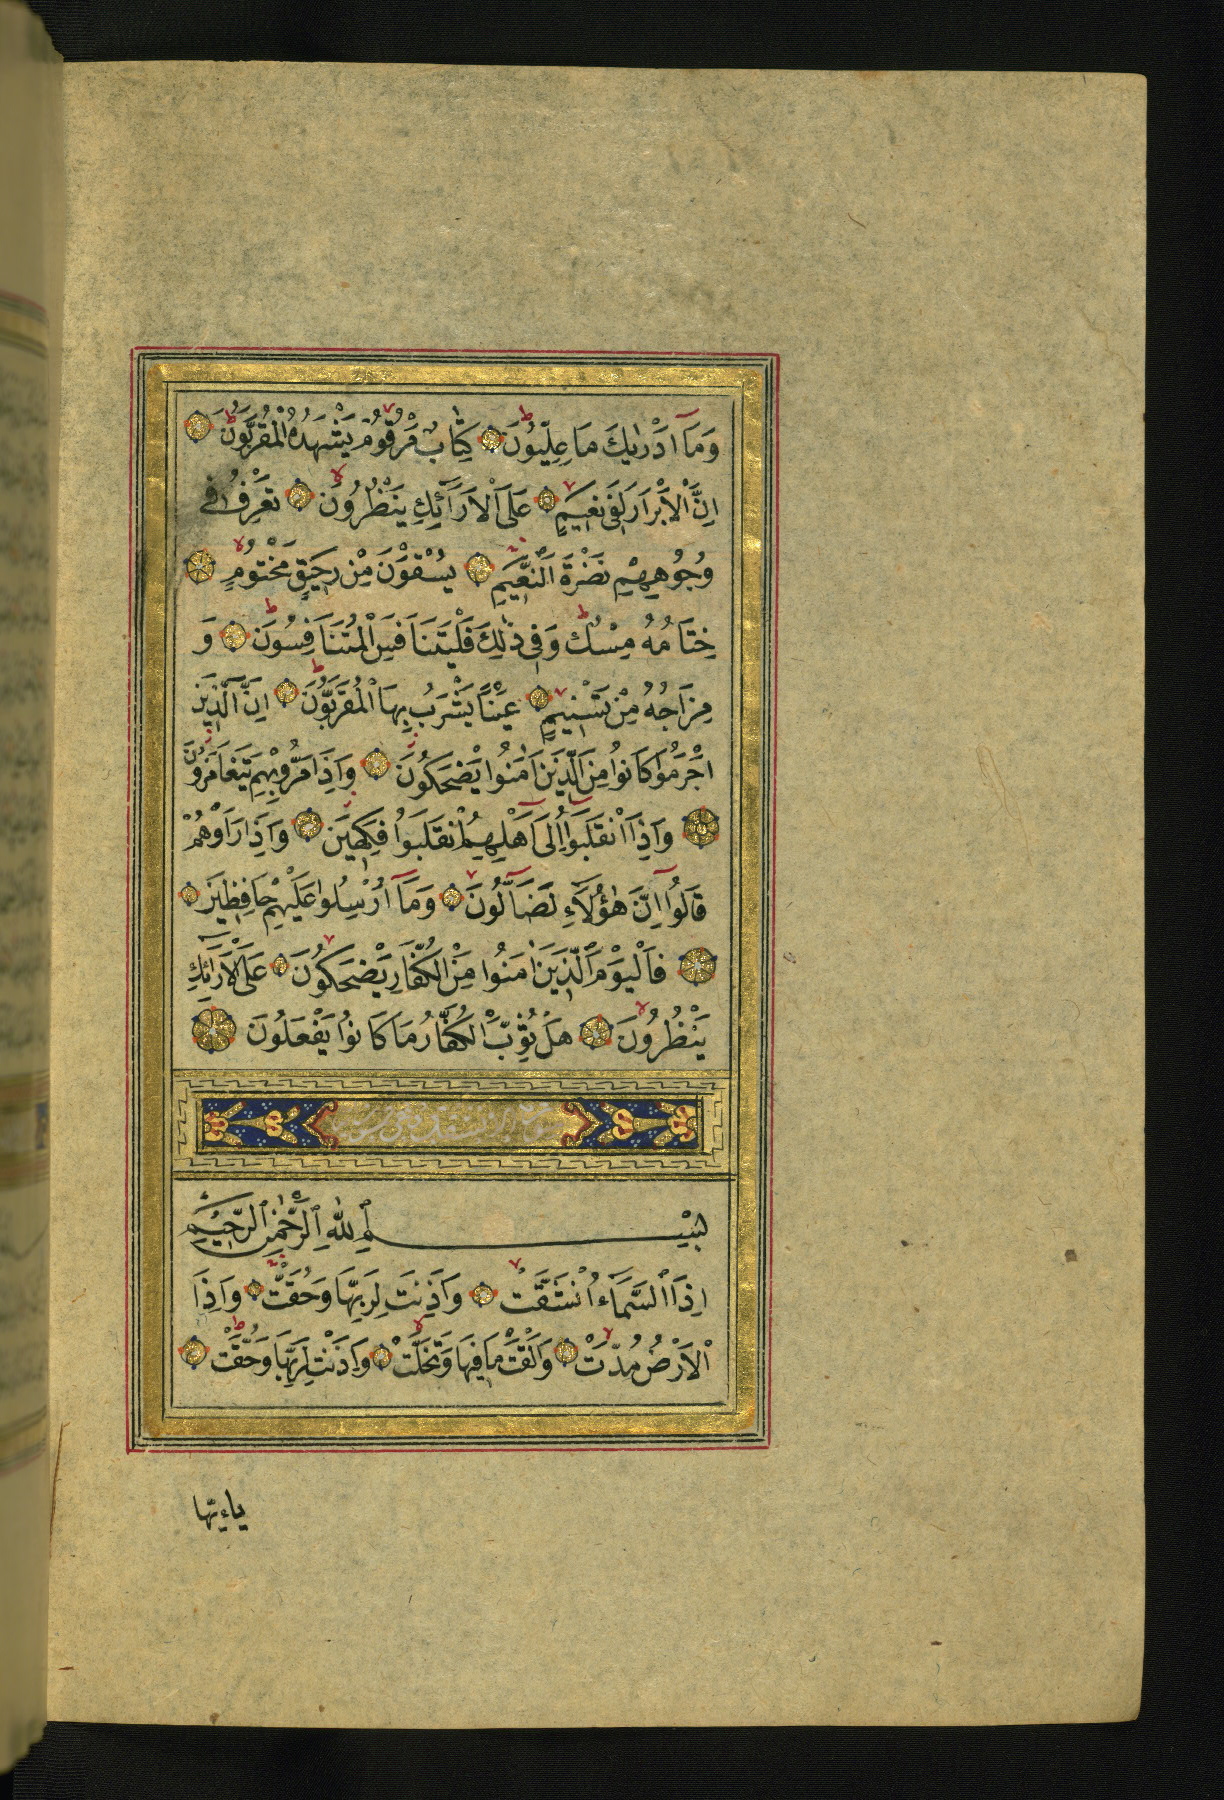 وَمَآ اَدْرٰيكَ مَا عِلِّيُّونَ كِتَابٌ مَرْقُومٌ يَشْهَدُهُ الْمُقَرَّبُونَ
اِنَّ الْاَبْرَارَ لَفِي نَعِيمٍ عَلَى الْاَرَآئِكِ يَنْظُرُونَ تَعْرِفُ فِي
وُجُوهِهِمْ نَضْرَةَ النَّعِيمِ يُسْقَوْنَ مِنْ رَحِيقٍ مَخْتُومٍ
خِتَامُهُ مِسْكٌ وَفِي ذٰلِكَ فَلْيَتَنَافَسِ الْمُتَنَافِسُونَ وَ
مِزَاجُهُ مِنْ تَسْنِيمٍ عَيْنًا يَشْرَبُ بِهَا الْمُقَرَّبُونَ اِنَّ الَّذِينَ
اَجْرَمُوا كَانُوا مِنَ الَّذِينَ اٰمَنُوا يَضْحَكُونَ وَاِذَا مَرُّوا بِهِمْ يَتَغَامَزُونَ
وَاِذَا انْقَلَبُوا اِلٰٓى اَهْلِهِمُ انْقَلَبُوا فَكِهِينَ وَاِذَا رَاَوْهُمْ
قَالُوٓا اِنَّ هٰٓؤُلَآءِ لَضَآلُّونَ وَمَآ اُرْسِلُوا عَلَيْهِمْ حَافِظِينَ
فَالْيَوْمَ الَّذِينَ اٰمَنُوا مِنَ الْكُفَّارِ يَضْحَكُونَ عَلَى الْاَرَآئِكِ
يَنْظُرُونَ هَلْ ثُوِّبَ الْكُفَّارُ مَا كَانُوا يَفْعَلُونَ
بِسْمِ اللّٰهِ الرَّحْمٰنِ الرَّحِيمِ
اِذَا السَّمَآءُ انْشَقَّتْ وَاَذِنَتْ لِرَبِّهَا وَحُقَّتْ وَاِذَا
الْاَرْضُ مُدَّتْ وَاَلْقَتْ مَا فِيهَا وَتَخَلَّتْ وَاَذِنَتْ لِرَبِّهَا وَحُقَّتْ
يآءيّها